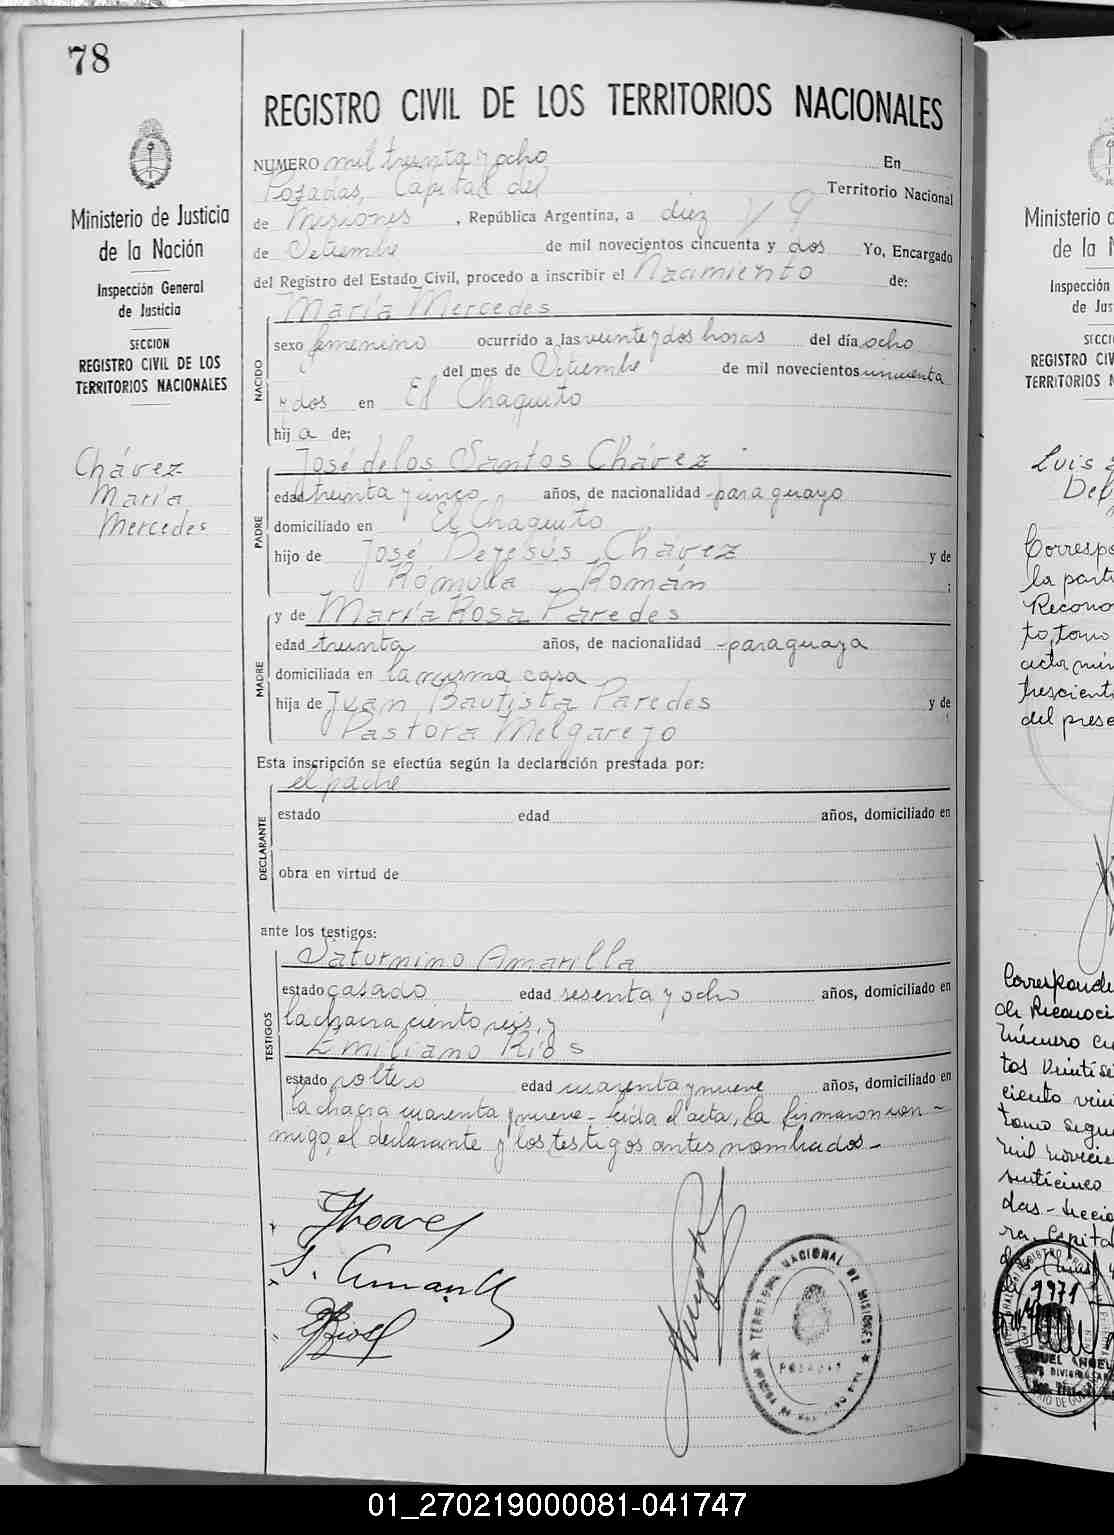 78
Ministerio de Justicia
de la Nación
Inspección General
de Justicia
SECCION
REGISTRO CIVIL DE LOS
TERRITORIOS NACIONALES
Chávez
María
Mercedes
REGISTRO CIVIL DE LOS TERRITORIOS NACIONALES
NUMERO mil treinta y ocho En
Posadas, Capital del Territorio Nacional
de Misiones, República Argentina, a diez y 9
de Setiembre de mil novecientos cincuenta y dos Yo, Encargado
del Registro del Estado Civil, procedo a inscribir el Nacimiento de:
NACIDO
María Mercedes
sexo femenino ocurrido a las veinte y dos horas del día ocho
del mes de Setiembre de mil novecientos cincuenta
y dos en El Chaquito
hija de:
PADRE
José de los Santos Chávez
edad treinta y cinco años, de nacionalidad paraguayo
domiciliado en El Chaquito
hijo de José Dejesús Chávez y de
Rómula Román ;
MADRE
y de María Rosa Paredes
edad treinta años, de nacionalidad paraguaya
domiciliada en la misma casa
hija de Juan Bautista Paredes y de
Pastora Melgarejo
Esta inscripción se efectúa según la declaración prestada por:
DECLARANTE
el padre
estado edad años, domiciliado en
obra en virtud de
ante los testigos:
TESTIGOS
Saturnino Amarilla
estado casado edad sesenta y ocho años, domiciliado en
la chacra ciento seis, y
Emiliano Ríos
estado soltero edad cuarenta y nueve años, domiciliado en
la chacra cuarenta y nueve - Leida el acta, la firmaron con-
migo, el declarante y los testigos antes nombrados -
S. Amarilla
TERRITORIO NACIONAL DE MISIONES
POSADAS
Ministerio d
de la N
Inspección
de Jus
SECCI
REGISTRO CIV
TERRITORIOS N
Luis
Correspo
la parti
Recono
to, tomo
acta núm
trescient
del prese
Corresponde
de Reconoci
número cu
tos veintise
ciento vein
tomo segu
mil novecie
senticinco
das - Seccio
ra, Capita
1971
01_270219000081-041747